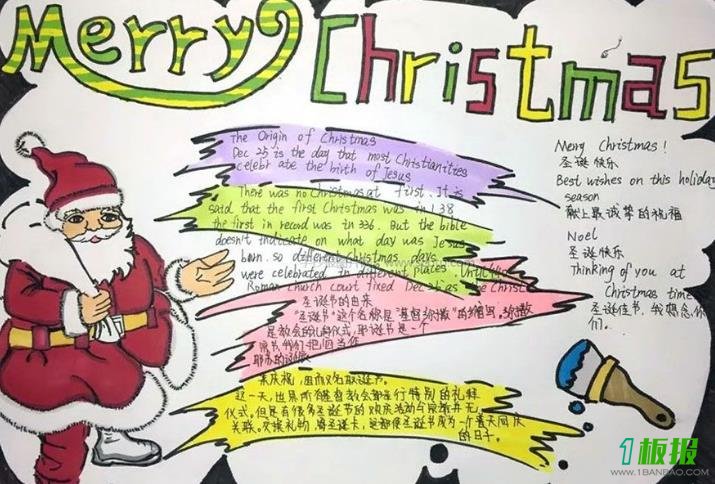 Merry Christmas
The Origin of Christmas
Dec 25 is the day that most Christianities
celebr ate the birth of Jesus
There was no Christmas at first. It is
said that the first Christmas was in 138
the first in record was in 336. But the bible
doesn't indicate on what day was Jesus
born. so different Christmas days
were celebrated in different plates. Until
Roman church court fixed Dec as the Christ
圣诞节的由来
"圣诞节"这个名称是"基督弥撒"的缩写。弥撒
是教会的礼拜仪式,耶诞节是一个
我们把它当作
耶苏的诞辰
来庆祝,因而又名耶诞节。
这一天,世界所有基督教会都举行特别的礼拜
仪式。但是有很多圣诞节的欢庆活动
关联。交换礼物,寄圣诞卡,这都使圣诞节成为一个普天同庆
的日子。
Merry Christmas!
圣诞快乐
Best wishes on this holiday
season
献上最诚挚的祝福
Noel
圣诞快乐
Thinking of you at
Christmas time
圣诞佳节,我想念你
们。
1板报
WWW.1BANBAO.COM